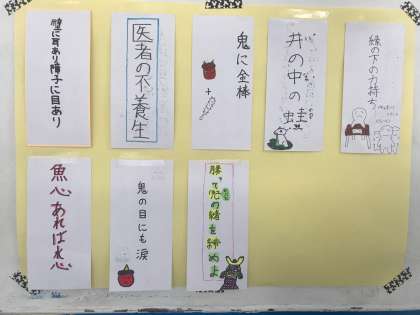 壁に耳あり障子に目あり
医者の不養生
鬼に金棒
+
井の中の蛙
縁の下の力持ち
魚心あれば水心
鬼の目にも涙
勝って兜の緒を締めよ